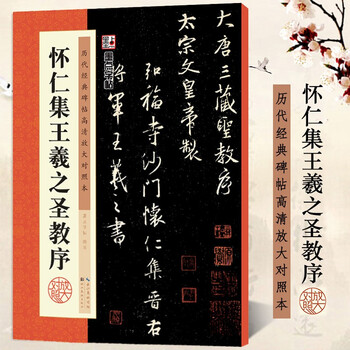 怀仁集王羲之圣教序
历代经典碑帖高清放大对照本
放大
对照
大唐三藏聖教序
太宗文皇帝製
弘福寺沙门懷仁集晋右
將軍王羲之書
怀仁集王羲之圣教序
历代经典碑帖高清放大对照本
放大
对照